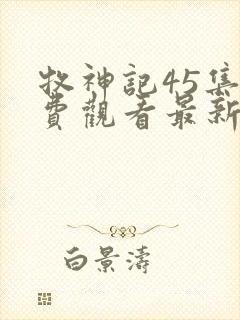 牧神記45集
費觀看最新
白景濤